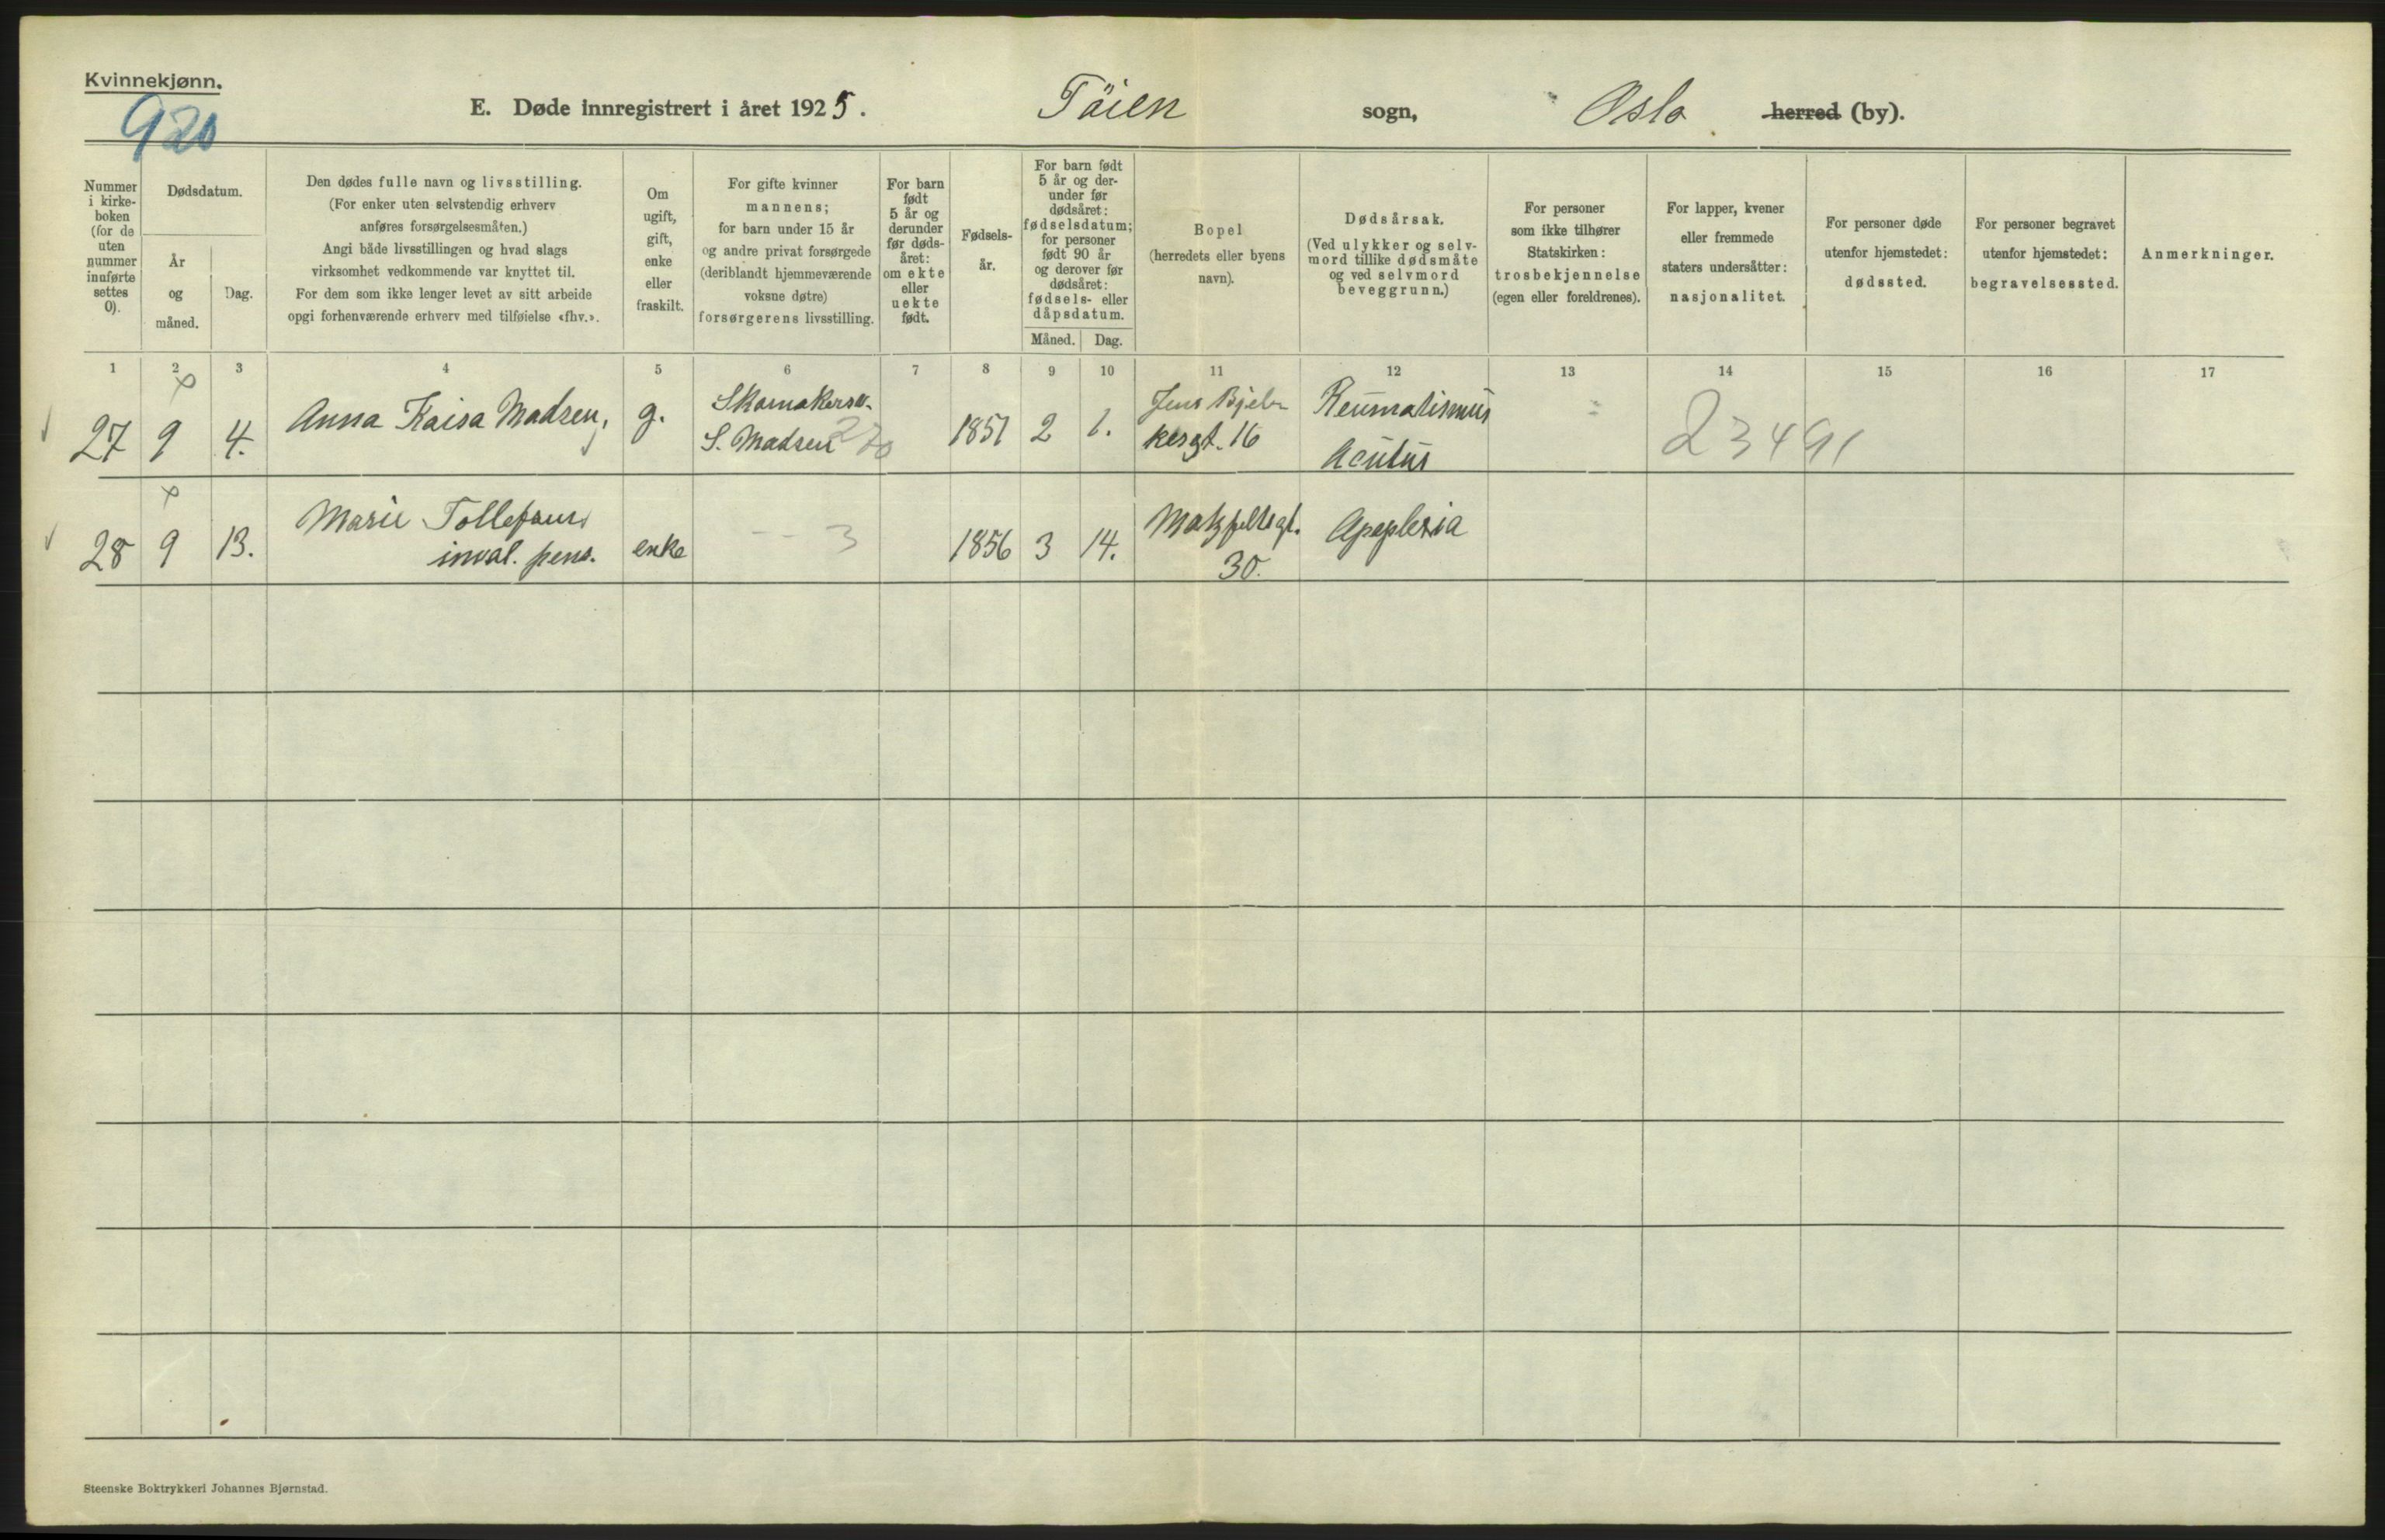 Kvinnekjønn.
920
E. Døde innregistrert i året 1925.
Töien sogn,
Oslo herred (by).
Nummer
i kirke-
boken
(for de
uten
nummer
innførte
settes
0).
Dødsdatum.
År
og
måned.
Dag.
Den dødes fulle navn og livsstilling.
(For enker uten selvstendig erhverv
anføres forsørgelsesmåten.)
Angi både livsstillingen og hvad slags
virksomhet vedkommende var knyttet til.
For dem som ikke lenger levet av sitt arbeide
opgi forhenværende erhverv med tilføielse «fhv.».
Om
ugift,
gift,
enke
eller
fraskilt.
For gifte kvinner
mannens;
for barn under 15 år
og andre privat forsørgede
(deriblandt hjemmeværende
voksne døtre)
forsørgerens livsstilling.
For barn
født
5 år og
derunder
før døds-
året:
om ekte
eller
uekte
født.
Fødsels-
år.
For barn født
5 år og der-
under før
dødsåret:
fødselsdatum;
for personer
født 90 år
og derover før
dødsåret:
fødsels- eller
dåpsdatum.
Måned. Dag.
Bopel
(herredets eller byens
navn).
Dødsårsak.
(Ved ulykker og selv-
mord tillike dødsmåte
og ved selvmord
beveggrunn.)
For personer
som ikke tilhører
Statskirken:
trosbekjennelse
(egen eller foreldrenes).
For lapper, kvener
eller fremmede
staters undersåtter:
nasjonalitet.
For personer døde
utenfor hjemstedet:
dødssted.
For personer begravet
utenfor hjemstedet:
begravelsessted.
Anmerkninger.
1 2 3 4 5 6 7 8 9 10 11 12 13 14 15 16 17
27 9 4. Anna Kaisa Madsen, g.
S. Madsen 270
1851 2 1.
Jens Bjel-
kesgt. 16
Reumatismus
Acutus
23491
28 9 13. Marie
inval. pens.
enke
-- 3
1856 3 14.
30.
Apoplexia
Steenske Boktrykkeri Johannes Bjørnstad.